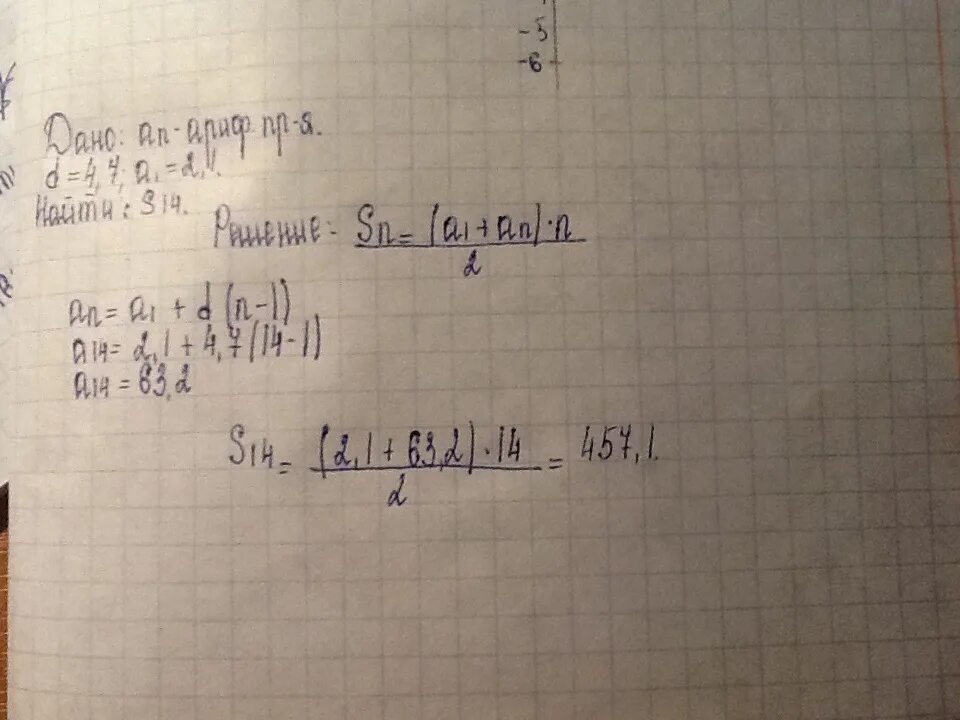 -5
-6
Дано: an-ариф пр-я.
d=4,7; a1=2,1.
Найти: S14.
Решение: Sn=(a1+an)·n
2
an=a1+d(n-1)
a14=2,1+4,7(14-1)
a14=63,2
S14=(2,1+63,2)·14=457,1.
2